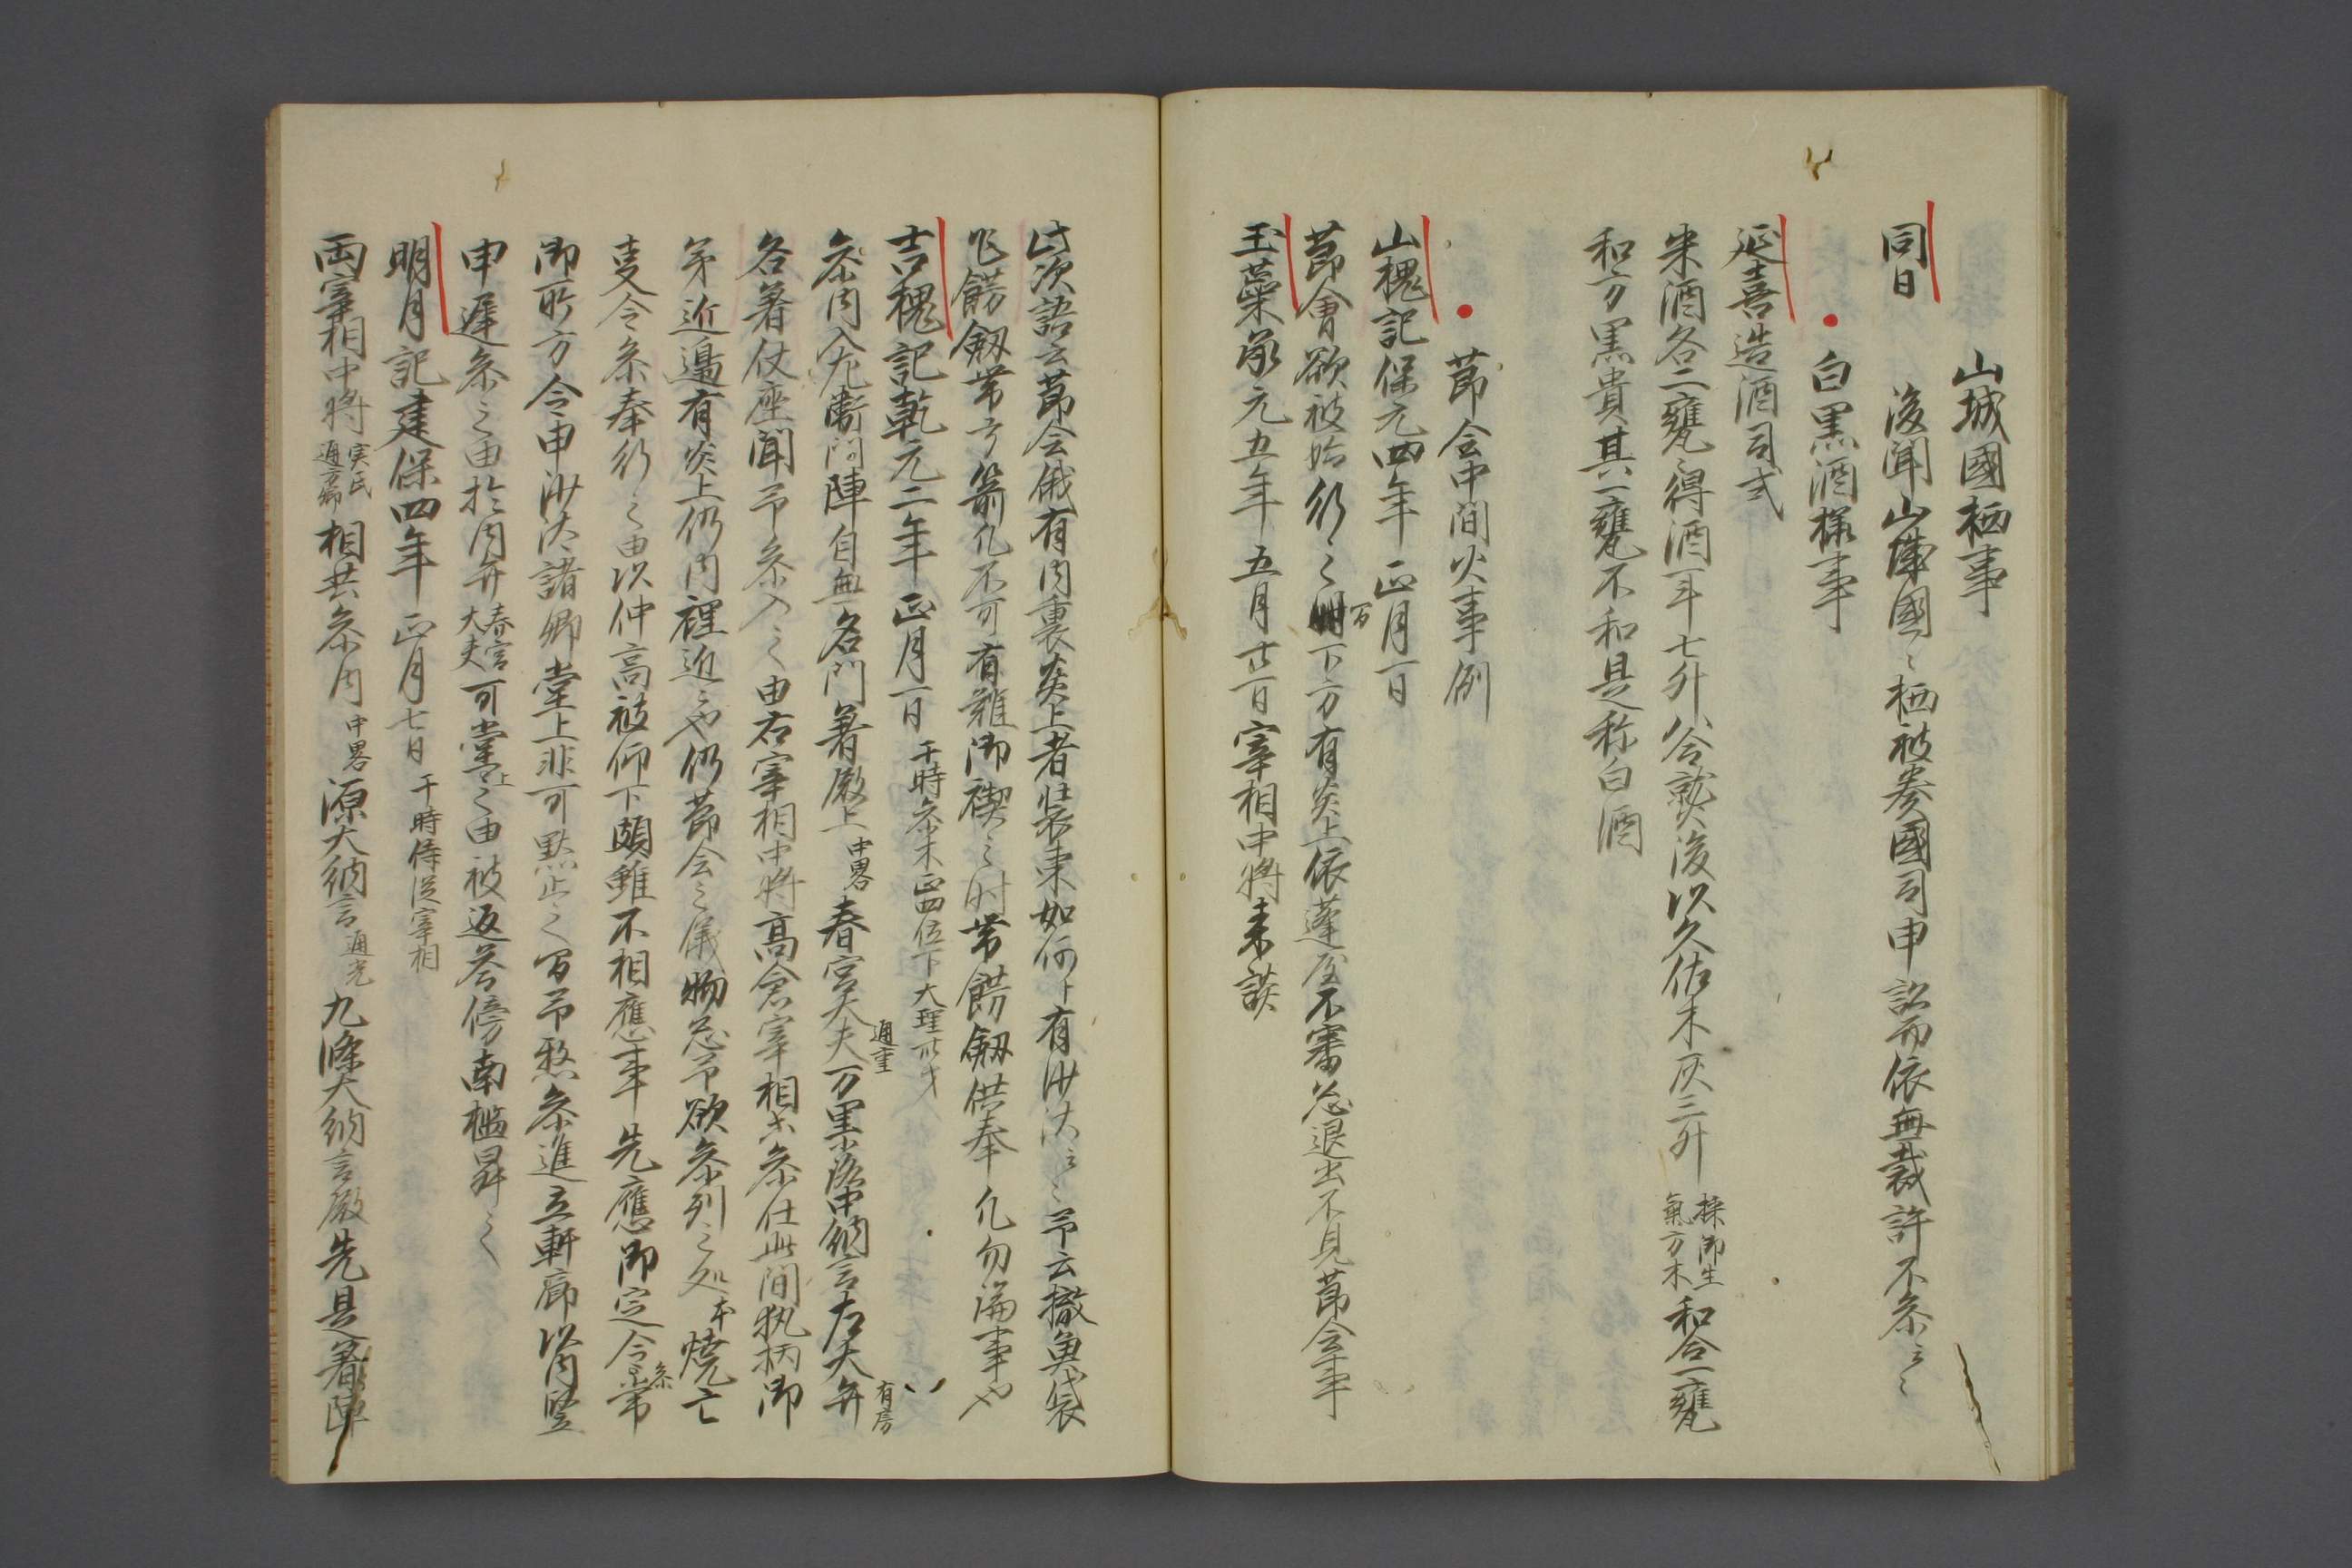 山城國栖事
同日　後聞山陣國々栖被奏國司申訟而依無裁許不参云々
白黒酒様事
延喜造酒司式
米酒各二甕々得酒一斗七升八合熟後以久佐木灰三升採御生氣方木和合一甕
和方黒貴其一甕不和是称白酒
節会中間火事例
山槐記保元四年正月一日
節會欲被始行之間下方有炎上依蓬屋不審忩退出不見節会事
玉蘂承元五年五月廿一日宰相中将来談
此次語云節会俄有内裏炎上者装束如何ト有沙汰云々予云撤魚袋
飾劔帯弓箭凡不可有難御禊之时帯餝劔供奉凡勿論事也
吉槐記乾元二年正月一日于時参木正四位下大理廿才
参内入左衛門陣自無名門著殿上中畧春宮大夫通重万里小路中納言左大弁有房
各著仗座聞予参入之由右宰相中将高倉宰相等参仕此間執柄御
第近邉有炎上仍内裡近々也仍節会之儀物忩予欲参列之処本焼亡
支令参奉行之由以仲高被仰下頗雖不相應事先應御定令参常
御所方令申沙汰諸卿堂上非可黙止之間予愁参進立軒廊以内竪
申遅参之由於内弁春宮大夫可堂上之由被返答傍南檻昇之
明月記建保四年正月七日于時侍従宰相
両宰相中将実氏通方卿相共参内中畧源大納言通光九條大納言殿先是著陣